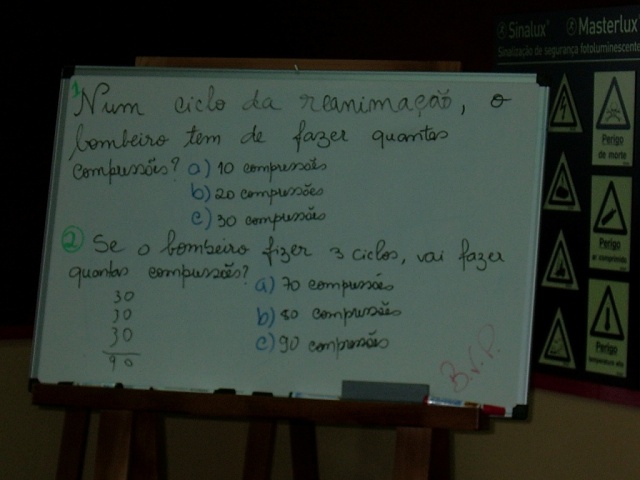 1 Num ciclo da reanimação, o
bombeiro tem de fazer quantas
compressões? a) 10 compressões
b) 20 compressões
c) 30 compressões
2 Se o bombeiro fizer 3 ciclos, vai fazer
quantas compressões?
a) 70 compressões
b) 80 compressões
c) 90 compressões
30
30
30
90
B.V.P.
Sinalux® Masterlux
Sinalização de segurança fotoluminescente
Perigo
de morte
Perigo
ar comprimido
Perigo
temperatura alta